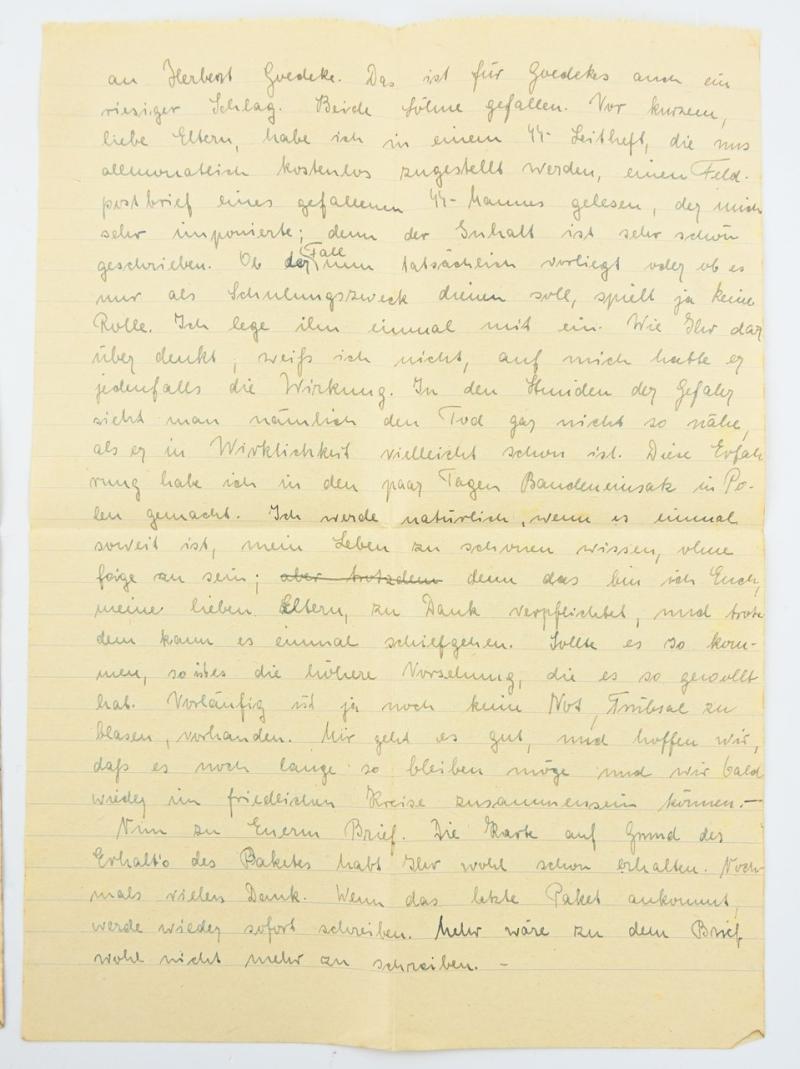 an Herbert Goedeke. Das ist für Goedekes auch ein
riesiger Schlag. Beide Söhne gefallen. Vor kurzem,
liebe Eltern, habe ich in einem SS-Leitheft, die uns
allmonatlich kostenlos zugestellt werden, einen Feld-
postbrief eines gefallenen SS-Mannes gelesen, der mich
sehr imponierte; denn der Inhalt ist sehr schön
geschrieben. Ob der Fall nun tatsächlich vorliegt oder ob es
nur als Schulungszweck dienen soll, spielt ja keine
Rolle. Ich lege ihn einmal mit ein. Wie Ihr dar
über denkt, weiß ich nicht, auf mich hatte er
jedenfalls die Wirkung. In den Stunden der Gefahr
sieht man nämlich den Tod gar nicht so nahe,
als er in Wirklichkeit vielleicht schon ist. Diese Erfah
rung habe ich in den paar Tagen Bandeneinsatz in Po-
len gemacht. Ich werde natürlich, wenn es einmal
soweit ist, mein Leben zu schonen wissen, ohne
feige zu sein; aber trotzdem denn das bin ich Euch,
meine lieben Eltern, zu Dank verpflichtet, und trotz
dem kann es einmal schiefgehen. Sollte es so kom-
men, so ist es die höhere Vorsehung, die es so gewollt
hat. Vorläufig ist ja noch keine Not, Trübsal zu
blasen, vorhanden. Mir geht es gut, und hoffen wir,
daß es noch lange so bleiben möge und wir bald
wieder im friedlichen Kreise zusammensein können.-
Nun zu Euerm Brief. Die Karte auf Grund des
Erhalt's des Paketes habt Ihr wohl schon erhalten. Noch-
mals vielen Dank. Wenn das letzte Paket ankommt,
werde wieder sofort schreiben. Mehr wäre zu dem Brief
wohl nicht mehr zu schreiben. -